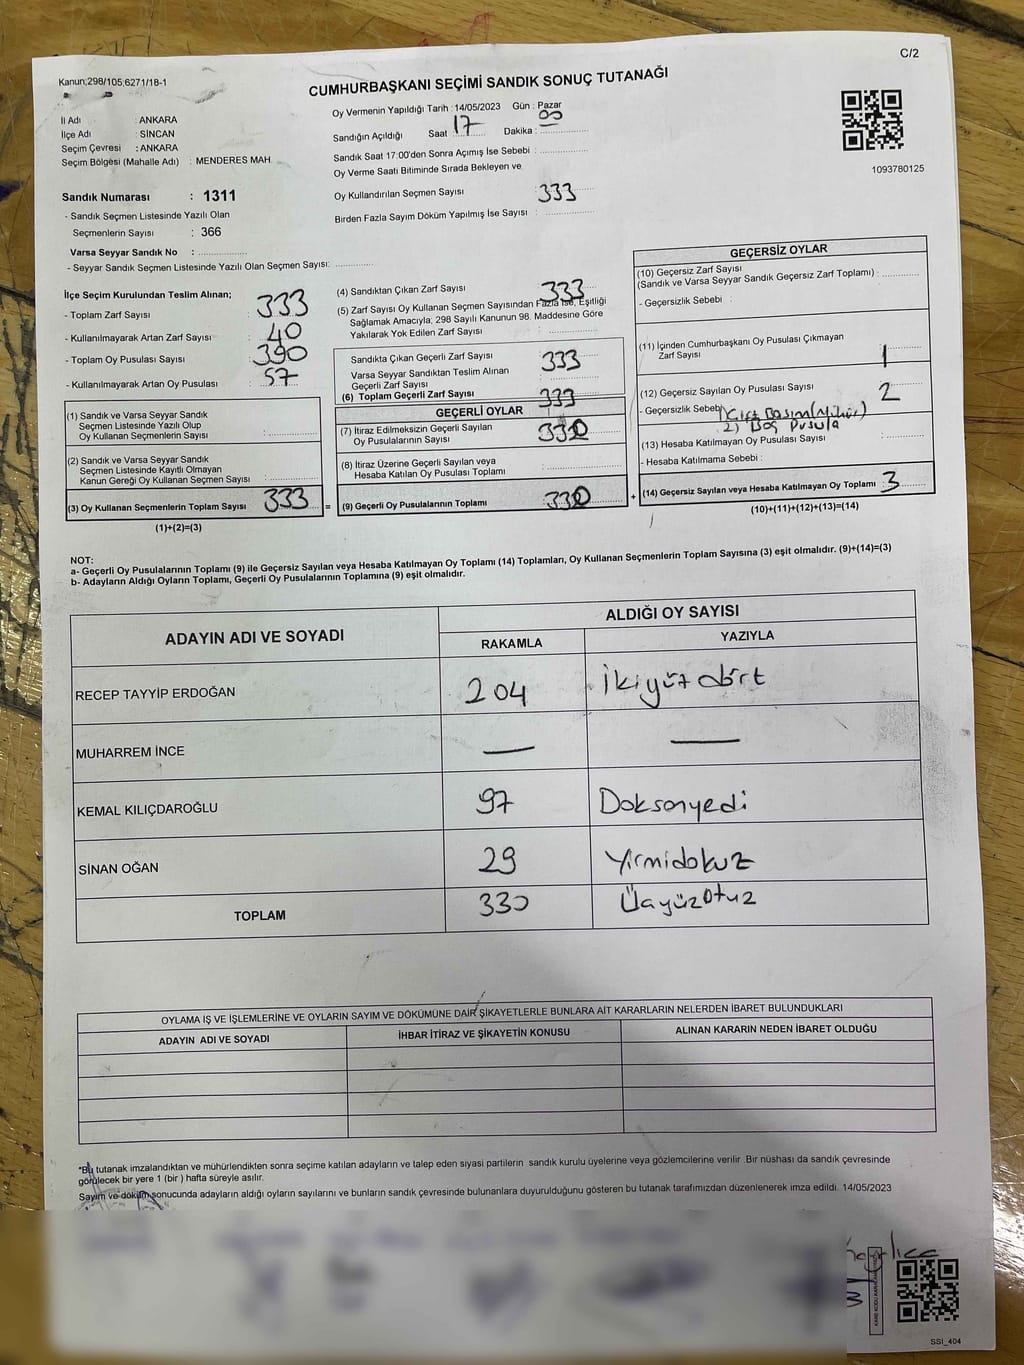 C/2
Kanun;298/105;6271/18-1
CUMHURBAŞKANI SEÇİMİ SANDIK SONUÇ TUTANAĞI
İl Adı : ANKARA
İlçe Adı : SİNCAN
Seçim Çevresi : ANKARA
Seçim Bölgesi (Mahalle Adı) : MENDERES MAH.
Sandık Numarası : 1311
- Sandık Seçmen Listesinde Yazılı Olan
Seçmenlerin Sayısı : 366
Varsa Seyyar Sandık No : ................
- Seyyar Sandık Seçmen Listesinde Yazılı Olan Seçmen Sayısı: ............
Oy Vermenin Yapıldığı Tarih : 14/05/2023 Gün : Pazar
Sandığın Açıldığı Saat : 17 Dakika : 00
Sandık Saat 17:00'den Sonra Açımış İse Sebebi : ................
Oy Verme Saati Bitiminde Sırada Bekleyen ve
Oy Kullandırılan Seçmen Sayısı : 333
Birden Fazla Sayım Döküm Yapılmış İse Sayısı : ................
1093780125
İlçe Seçim Kurulundan Teslim Alınan;
- Toplam Zarf Sayısı : 333
- Kullanılmayarak Artan Zarf Sayısı : 40
- Toplam Oy Pusulası Sayısı : 390
- Kullanılmayarak Artan Oy Pusulası : 57
(1) Sandık ve Varsa Seyyar Sandık
Seçmen Listesinde Yazılı Olup
Oy Kullanan Seçmenlerin Sayısı : ............
(2) Sandık ve Varsa Seyyar Sandık
Seçmen Listesinde Kayıtlı Olmayan
Kanun Gereği Oy Kullanan Seçmen Sayısı : ............
(3) Oy Kullanan Seçmenlerin Toplam Sayısı 333
(1)+(2)=(3)
=
(4) Sandıktan Çıkan Zarf Sayısı : 333
(5) Zarf Sayısı Oy Kullanan Seçmen Sayısından Fazla İse, Eşitliği
Sağlamak Amacıyla; 298 Sayılı Kanunun 98. Maddesine Göre
Yakılarak Yok Edilen Zarf Sayısı : ............
Sandıkta Çıkan Geçerli Zarf Sayısı : 333
Varsa Seyyar Sandıktan Teslim Alınan
Geçerli Zarf Sayısı : ............
(6) Toplam Geçerli Zarf Sayısı : 333
GEÇERLİ OYLAR
(7) İtiraz Edilmeksizin Geçerli Sayılan
Oy Pusulalarının Sayısı : 330
(8) İtiraz Üzerine Geçerli Sayılan veya
Hesaba Katılan Oy Pusulası Toplamı : ............
(9) Geçerli Oy Pusulalarının Toplamı 330
+
GEÇERSİZ OYLAR
(10) Geçersiz Zarf Sayısı
(Sandık ve Varsa Seyyar Sandık Geçersiz Zarf Toplamı) : ............
- Geçersizlik Sebebi :
(11) İçinden Cumhurbaşkanı Oy Pusulası Çıkmayan
Zarf Sayısı 1
(12) Geçersiz Sayılan Oy Pusulası Sayısı : 2
- Geçersizlik Sebebi 1) Çift Basım(Mühür)
2) Boş Pusula
(13) Hesaba Katılmayan Oy Pusulası Sayısı : ............
- Hesaba Katılmama Sebebi :
(14) Geçersiz Sayılan veya Hesaba Katılmayan Oy Toplamı : 3
(10)+(11)+(12)+(13)=(14)
NOT:
a- Geçerli Oy Pusulalarının Toplamı (9) ile Geçersiz Sayılan veya Hesaba Katılmayan Oy Toplamı (14) Toplamları, Oy Kullanan Seçmenlerin Toplam Sayısına (3) eşit olmalıdır. (9)+(14)=(3)
b- Adayların Aldığı Oyların Toplamı, Geçerli Oy Pusulalarının Toplamına (9) eşit olmalıdır.
ADAYIN ADI VE SOYADI
ALDIĞI OY SAYISI
RAKAMLA YAZIYLA
RECEP TAYYİP ERDOĞAN 204 İkiyüz dört
MUHARREM İNCE — —
KEMAL KILIÇDAROĞLU 97 Doksanyedi
SİNAN OĞAN 29 Yirmidokuz
TOPLAM 330 Üçyüzotuz
OYLAMA İŞ VE İŞLEMLERİNE VE OYLARIN SAYIM VE DÖKÜMÜNE DAİR ŞİKAYETLERLE BUNLARA AİT KARARLARIN NELERDEN İBARET BULUNDUKLARI
ADAYIN ADI VE SOYADI İHBAR İTİRAZ VE ŞİKAYETİN KONUSU ALINAN KARARIN NEDEN İBARET OLDUĞU
*Bu tutanak imzalandıktan ve mühürlendikten sonra seçime katılan adayların ve talep eden siyasi partilerin sandık kurulu üyelerine veya gözlemcilerine verilir .Bir nüshası da sandık çevresinde
görülecek bir yere 1 (bir ) hafta süreyle asılır.
Sayım ve döküm sonucunda adayların aldığı oyların sayılarını ve bunların sandık çevresinde bulunanlara duyurulduğunu gösteren bu tutanak tarafımızdan düzenlenerek imza edildi. 14/05/2023
SSI_404